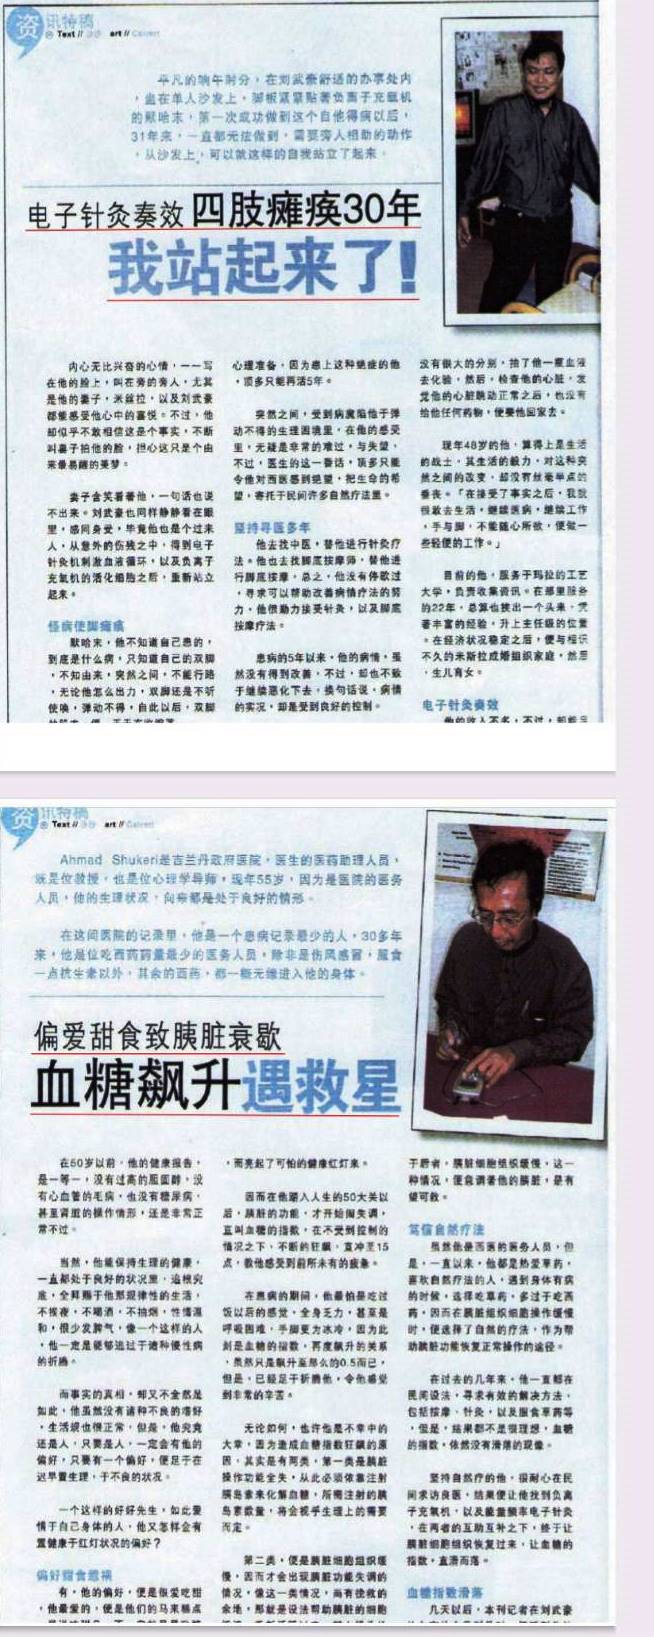 资讯特稿
Text // art // Calvert
平凡的晌午时分，在刘武豪舒适的办事处内
，坐在单人沙发上，脚板紧紧贴著负离子充氧机
的默哈末，第一次成功做到这个自他得病以后，
31年来，一直都无法做到，需要旁人相助的动作
，从沙发上，可以就这样的自我站立了起来。
电子针灸奏效 四肢瘫痪30年
我站起来了!
内心无比兴奋的心情，一一写
在他的脸上，叫在旁的旁人，尤其
是他的妻子，米丝拉，以及刘武豪
都能感受他心中的喜悦。不过，他
却似乎不敢相信这是个事实，不断
叫妻子拍他的脸，担心这只是个由
来最易醒的美梦。
妻子含笑看著他，一句话也说
不出来。刘武豪也同样静静看在眼
里，感同身受，毕竟他也是个过来
人，从意外的伤残之中，得到电子
针灸机刺激血液循环，以及负离子
充氧机的活化细胞之后，重新站立
起来。
怪病使脚瘫痪
默哈末，他不知道自己患的，
到底是什么病，只知道自己的双脚
，不知由来，突然之间，不能行路
，无论他怎么出力，双脚还是不听
使唤，弹动不得，自此以后，双脚
心理准备，因为患上这种绝症的他
，顶多只能再活5年。
突然之间，受到病魔陷他于弹
动不得的生理困境里，在他的感受
里，无疑是非常的难过，与失望，
不过，医生的这一番话，顶多只能
令他对西医感到绝望，把生命的希
望，寄托于民间许多自然疗法里。
坚持寻医多年
他去找中医，替他进行针灸疗
法。他也去找脚底按摩师，替他进
行脚底按摩，总之，他没有停歇过
，寻求可以帮助改善病情疗法的努
力，他很勤力接受针灸，以及脚底
按摩疗法。
患病的5年以来，他的病情，虽
然没有得到改善，不过，却也不致
于继续恶化下去，换句话说，病情
的实况，却是受到良好的控制。
没有很大的分别，抽了他一瓶血液
去化验，然后，检查他的心脏，发
觉他的心脏跳动正常之后，也没有
给他任何药物，便要他回家去。
现年48岁的他，算得上是生活
的战士，其生活的毅力，对这种突
然之间的改变，却没有丝毫半点的
垂丧。「在接受了事实之后，我就
很敢去生活，继续医病，继续工作
，手与脚，不能随心所欲，便做一
些轻便的工作。」
目前的他，服务于玛拉的工艺
大学，负责收集资讯。在那里服务
的22年，总算也拼出一个头来，凭
著丰富的经验，升上主任级的位置
。在经济状况稳定之后，便与相识
不久的米斯拉成婚组织家庭，然后
，生儿育女。
电子针灸奏效
他的收入不多，不过，却能足
资讯特稿
Text // art // Calvert
Ahmad Shukeri是吉兰丹政府医院，医生的医药助理人员，
既是位教授，也是位心理学导师，现年55岁，因为是医院的医务
人员，他的生理状况，向来都是处于良好的情形。
在这间医院的记录里，他是一个患病记录最少的人，30多年
来，他是位吃西药药量最少的医务人员，除非是伤风感冒，服食
一点抗生素以外，其余的西药，都一概无缘进入他的身体。
偏爱甜食致胰脏衰歇
血糖飙升遇救星
在50岁以前，他的健康报告，
是一等一，没有过高的胆固醇，没
有心血管的毛病，也没有糖尿病，
甚至肾脏的操作情形，还是非常正
常不过。
当然，他能保持生理的健康，
一直都处于良好的状况里，追根究
底，全拜赐于他那规律性的生活，
不挨夜，不喝酒，不抽烟，性情温
和，很少发脾气，像一个这样的人
，他一定是能够逃过于诸种慢性病
的折磨。
而事实的真相，却又不全然是
如此，他虽然没有诸种不良的嗜好
，生活规也很正常，但是，他究竟
还是人，只要是人，一定会有他的
偏好，只要有一个偏好，便足于在
迟早置生理，于不良的状况。
一个这样的好好先生，如此爱
惜于自己身体的人，他又怎样会有
置健康于红灯状况的偏好？
偏好甜食惹祸
有，他的偏好，便是很爱吃甜
，他最爱的，便是他们的马来糕点
，而亮起了可怕的健康红灯来。
因而在他踏入人生的50大关以
后，胰脏的功能，才开始闹失调，
直叫血糖的指数，在不受到控制的
情况之下，不断的狂飙，直冲至15
点，教他感受到前所未有的疲惫。
在患病的期间，他最怕是吃过
饭以后的感觉，全身乏力，甚至是
呼吸困难，手脚更为冰冷，因为此
刻是血糖的指数，再度飙升的关系
，虽然只是飙升至那么的0.5而已，
但是，已经足于折磨他，令他感觉
到非常的辛苦。
无论如何，也许他是不幸中的
大幸，因为造成血糖指数狂飙的原
因，其实是有两类，第一类是胰脏
操作功能全失，从此必须依靠注射
胰岛素来化解血糖，所需注射的胰
岛素数量，将会视乎生理上的需要
而定。
第二类，便是胰脏细胞组织缓
慢，因而才会出现胰脏功能失调的
情况，像这一类情况，尚有挽救的
余地，那就是设法帮助胰脏的细胞
于黔者，胰脏细胞组织缓慢，这一
种情况，便意谓著他的胰脏，是有
望可救。
笃信自然疗法
虽然他是西医的医务人员，但
是，一直以来，他都是热爱草药，
喜欢自然疗法的人，遇到身体有病
的时候，选择吃草药，多过于吃西
药，因而在胰脏组织细胞操作缓慢
时，便选择了自然的疗法，作为帮
助胰脏功能恢复正常操作的途径。
在过去的几年来，他一直都在
民间设法，寻求有效的解决方法，
包括按摩、针灸，以及服食草药等
，但是，结果都不是很理想，血糖
的指数，依然没有滑落的现像。
坚持自然疗的他，很耐心在民
间求访良医，结果便让他找到负离
子充氧机，以及能量频率电子针灸
，在两者的互助互补之下，终于让
胰脏细胞组织恢复过来，让血糖的
指数，直滑而落。
血糖指数滑落
几天以后，本刊记者在刘武豪